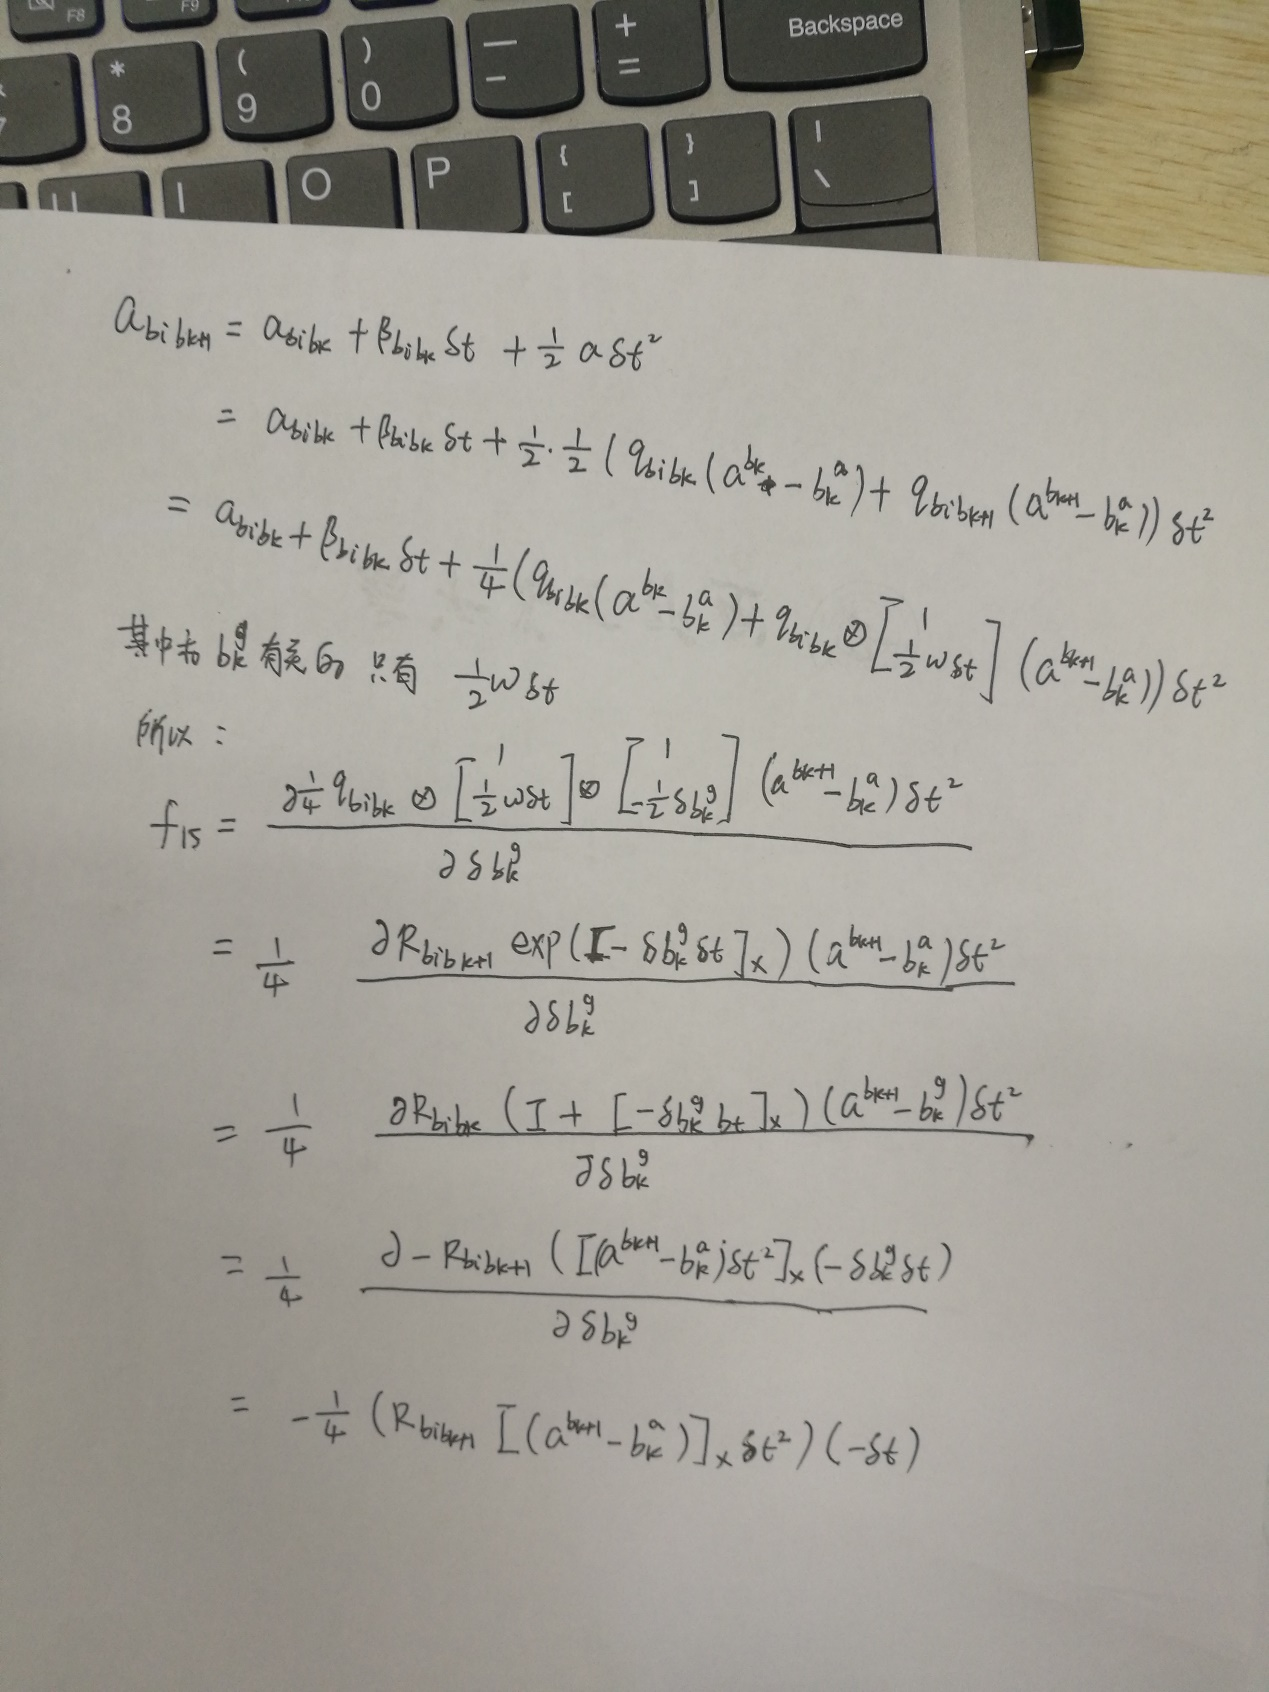 F8 F9
* 8 ( 9 ) 0 — - + = Backspace
U I O P { [ } ] | \
α_{b_i b_{k+1}} = α_{b_i b_k} + β_{b_i b_k} δt + 1/2 a δt²
= α_{b_i b_k} + β_{b_i b_k} δt + 1/2 · 1/2 ( q_{b_i b_k} (a^{b_k} - b_k^a) + q_{b_i b_{k+1}} (a^{b_{k+1}} - b_k^a)) δt²
= α_{b_i b_k} + β_{b_i b_k} δt + 1/4 ( q_{b_i b_k} (a^{b_k} - b_k^a) + q_{b_i b_k} ⊗ [1 / 1/2 ω δt] (a^{b_{k+1}} - b_k^a)) δt²
其中与 b_k^g 有关的 只有 1/2 ω δt
所以:
f_{15} = ∂ 1/4 q_{b_i b_k} ⊗ [1 / 1/2 ω δt] ⊗ [1 / -1/2 δb_k^g] (a^{b_{k+1}} - b_k^a) δt² / ∂δb_k^g
= 1/4 ∂R_{b_i b_{k+1}} exp([-δb_k^g δt]_×) (a^{b_{k+1}} - b_k^a) δt² / ∂δb_k^g
= 1/4 ∂R_{b_i b_k} (I + [-δb_k^g bt]_×) (a^{b_{k+1}} - b_k^g) δt² / ∂δb_k^g
= 1/4 ∂ - R_{b_i b_{k+1}} ([(a^{b_{k+1}} - b_k^a) δt²]_× (-δb_k^g δt) / ∂δb_k^g
= -1/4 (R_{b_i b_{k+1}} [(a^{b_{k+1}} - b_k^a)]_× δt²) (-δt)